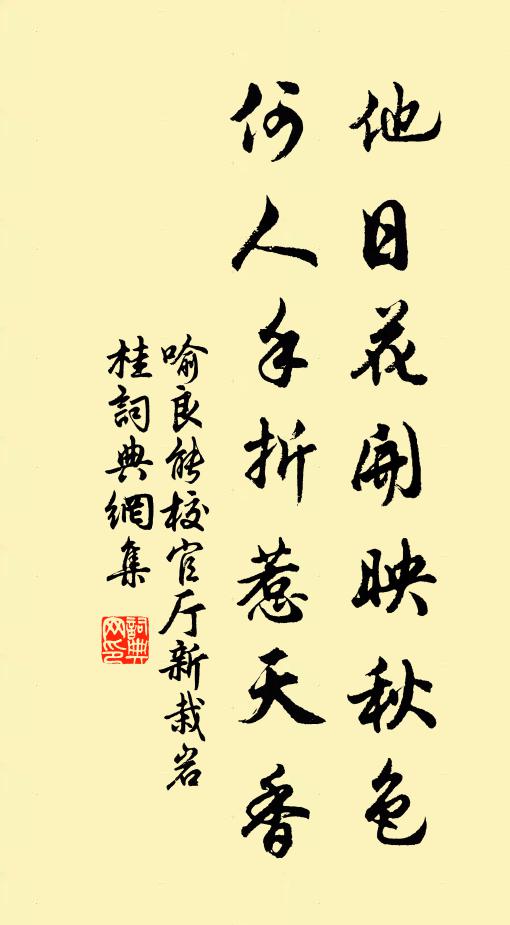 他日花開映秋色
何人手折惹天香
喻良能校官厅新栽岩
桂詞典網集
詞典
网印